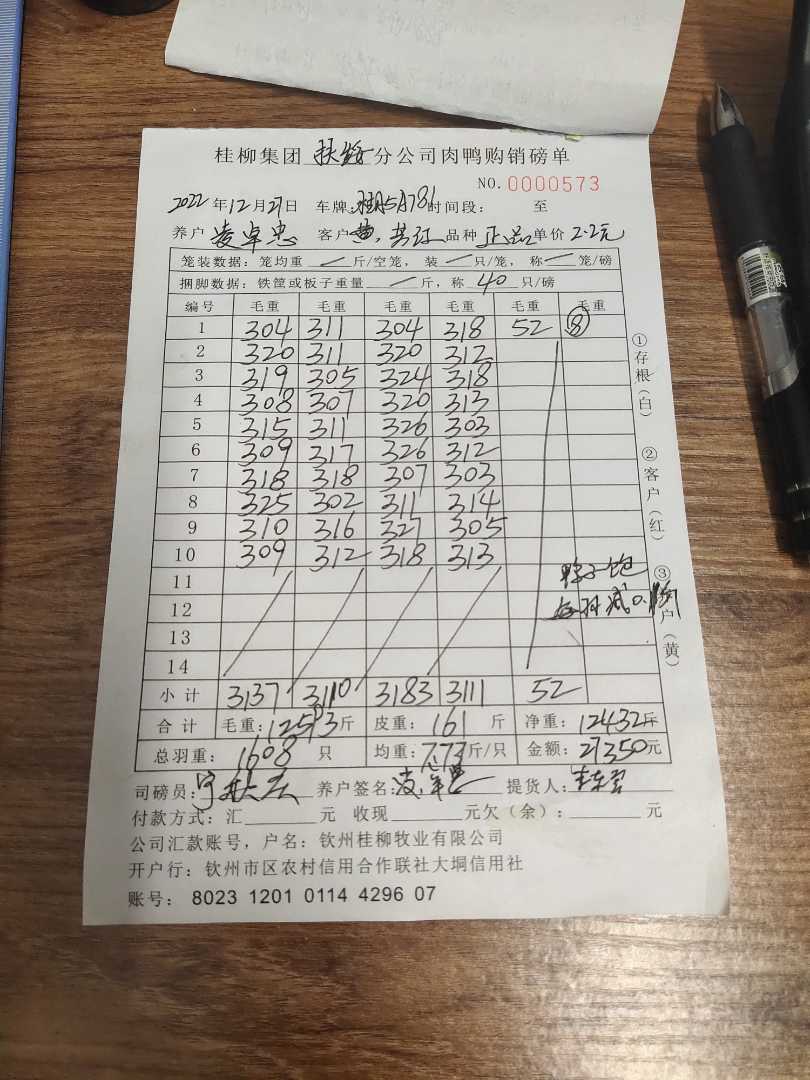 桂柳集团 扶绥 分公司肉鸭购销磅单
NO. 0000573
2022 年 12 月 27 日 车牌: 时间段: 至
养户 凌卓忠 客户 黄 品种 正品 单价 2.2元
笼装数据: 笼均重 / 斤/空笼, 装 / 只/笼, 称 / 笼/磅
捆脚数据: 铁筐或板子重量 / 斤, 称 40 只/磅
编号 毛重 毛重 毛重 毛重 毛重 毛重
1 304 311 304 318 52 ⑧
2 320 311 320 312
3 319 305 324 318
4 308 307 320 313
5 315 311 326 303
6 309 317 326 312
7 318 318 307 303
8 325 302 311 314
9 310 316 327 305
10 309 312 318 313
11
12
13
14
小计 3137 3110 3183 3111 52
合计 毛重: 12593 斤 皮重: 161 斤 净重: 12432 斤
总羽重: 1608 只 均重: 7.73 斤/只 金额: 27350 元
司磅员: 养户签名: 提货人:
付款方式: 汇 元 收现 元欠(余): 元
公司汇款账号, 户名: 钦州桂柳牧业有限公司
开户行: 钦州市区农村信用合作联社大垌信用社
账号: 8023 1201 0114 4296 07
①存根(白)
②客户(红)
③养户(黄)